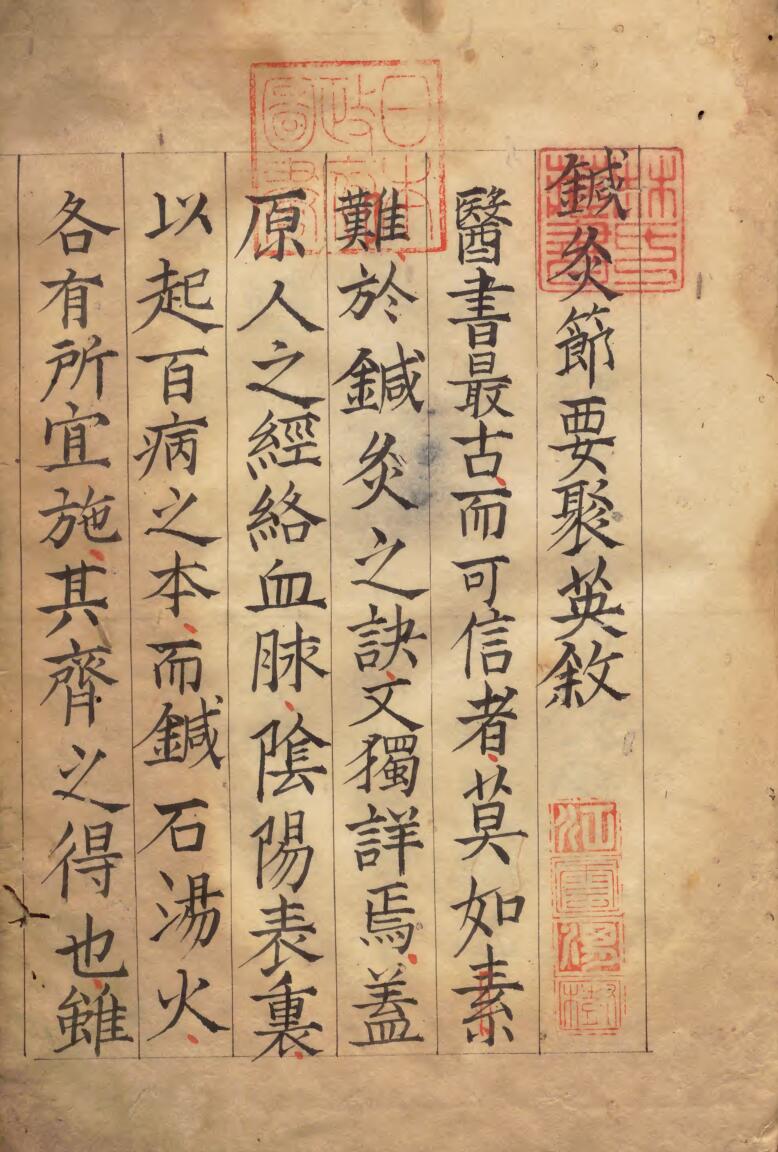 鍼灸節要聚英敘
醫書最古而可信者莫如素
難於鍼灸之訣文獨詳焉蓋
原人之經絡血脉陰陽表裏
以起百病之本而鍼石湯火
各有所宜施其齊之得也雖
日本政府圖書
林氏藏書
江雲渭樹